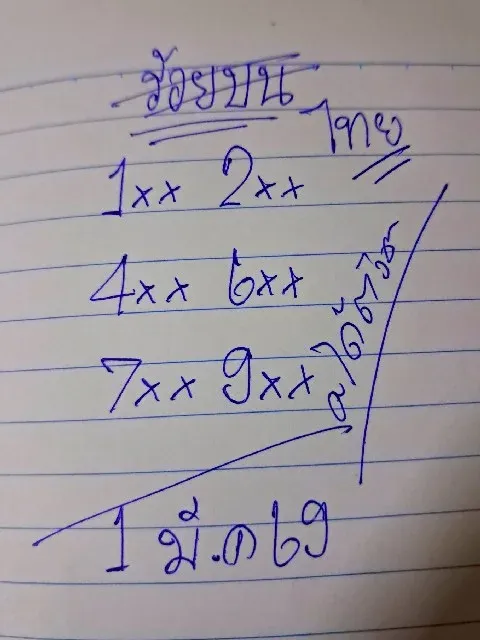 ร้อยบน
ไทย
1xx 2xx
4xx 6xx
7xx 9xx
1 มี.ค 69